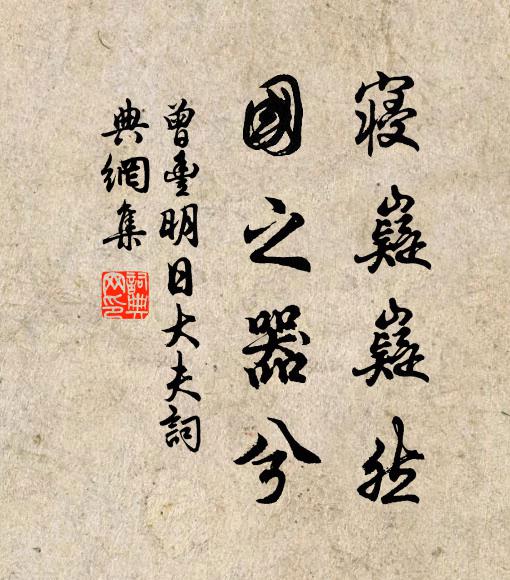 寢嶷嶷然
國之器兮
曾豐明日大夫詞
典網集
詞典
网印